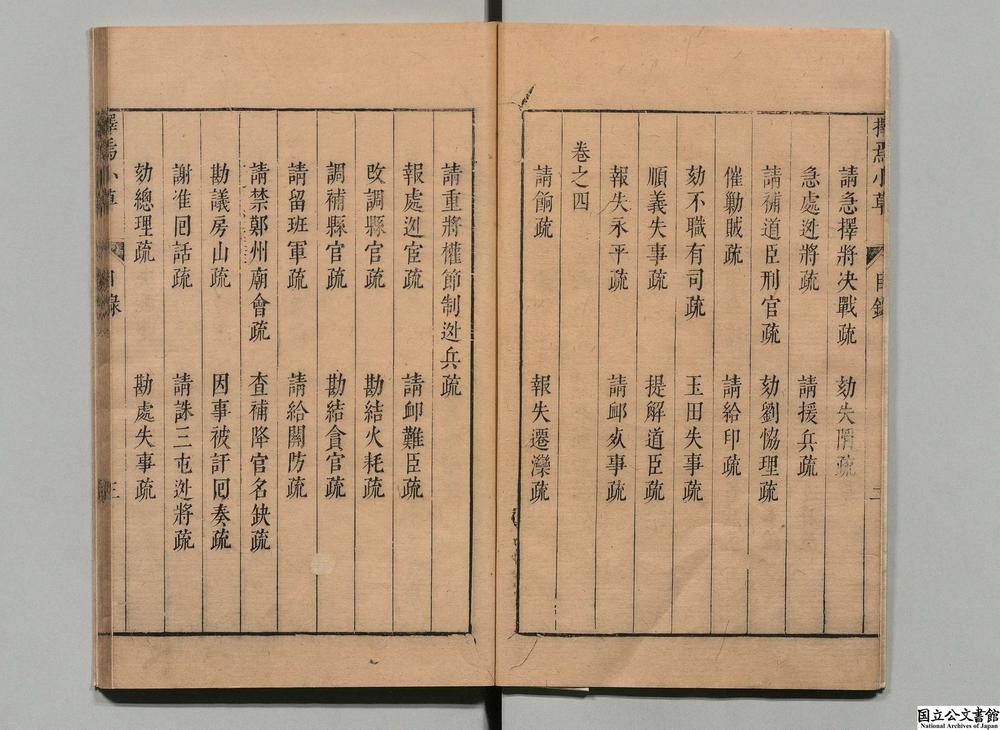 擇焉小草 目錄 二
請急擇將決戰疏 劾失隋疏
急處迯將疏 請援兵疏
請補道臣刑官疏 劾劉恊理疏
催勦賊疏 請給印疏
劾不職有司疏 玉田失事疏
順義失事疏 提解道臣疏
報失永平疏 請邮 事疏
卷之四
請餉疏 報失遷灤疏
請重將權節制迯兵疏
報處迯宦疏 請卹難臣疏
改調縣官疏 勘結火耗疏
調補縣官疏 勘結貪官疏
請留班軍疏 請給關防疏
請禁鄭州廟會疏 查補降官名缺疏
勘議房山疏 因事被訐囘奏疏
謝准囘話疏 請誅三屯迯將疏
劾總理疏 勘處失事疏
擇焉小草 目錄 三
国立公文書館
National Archives of Japan